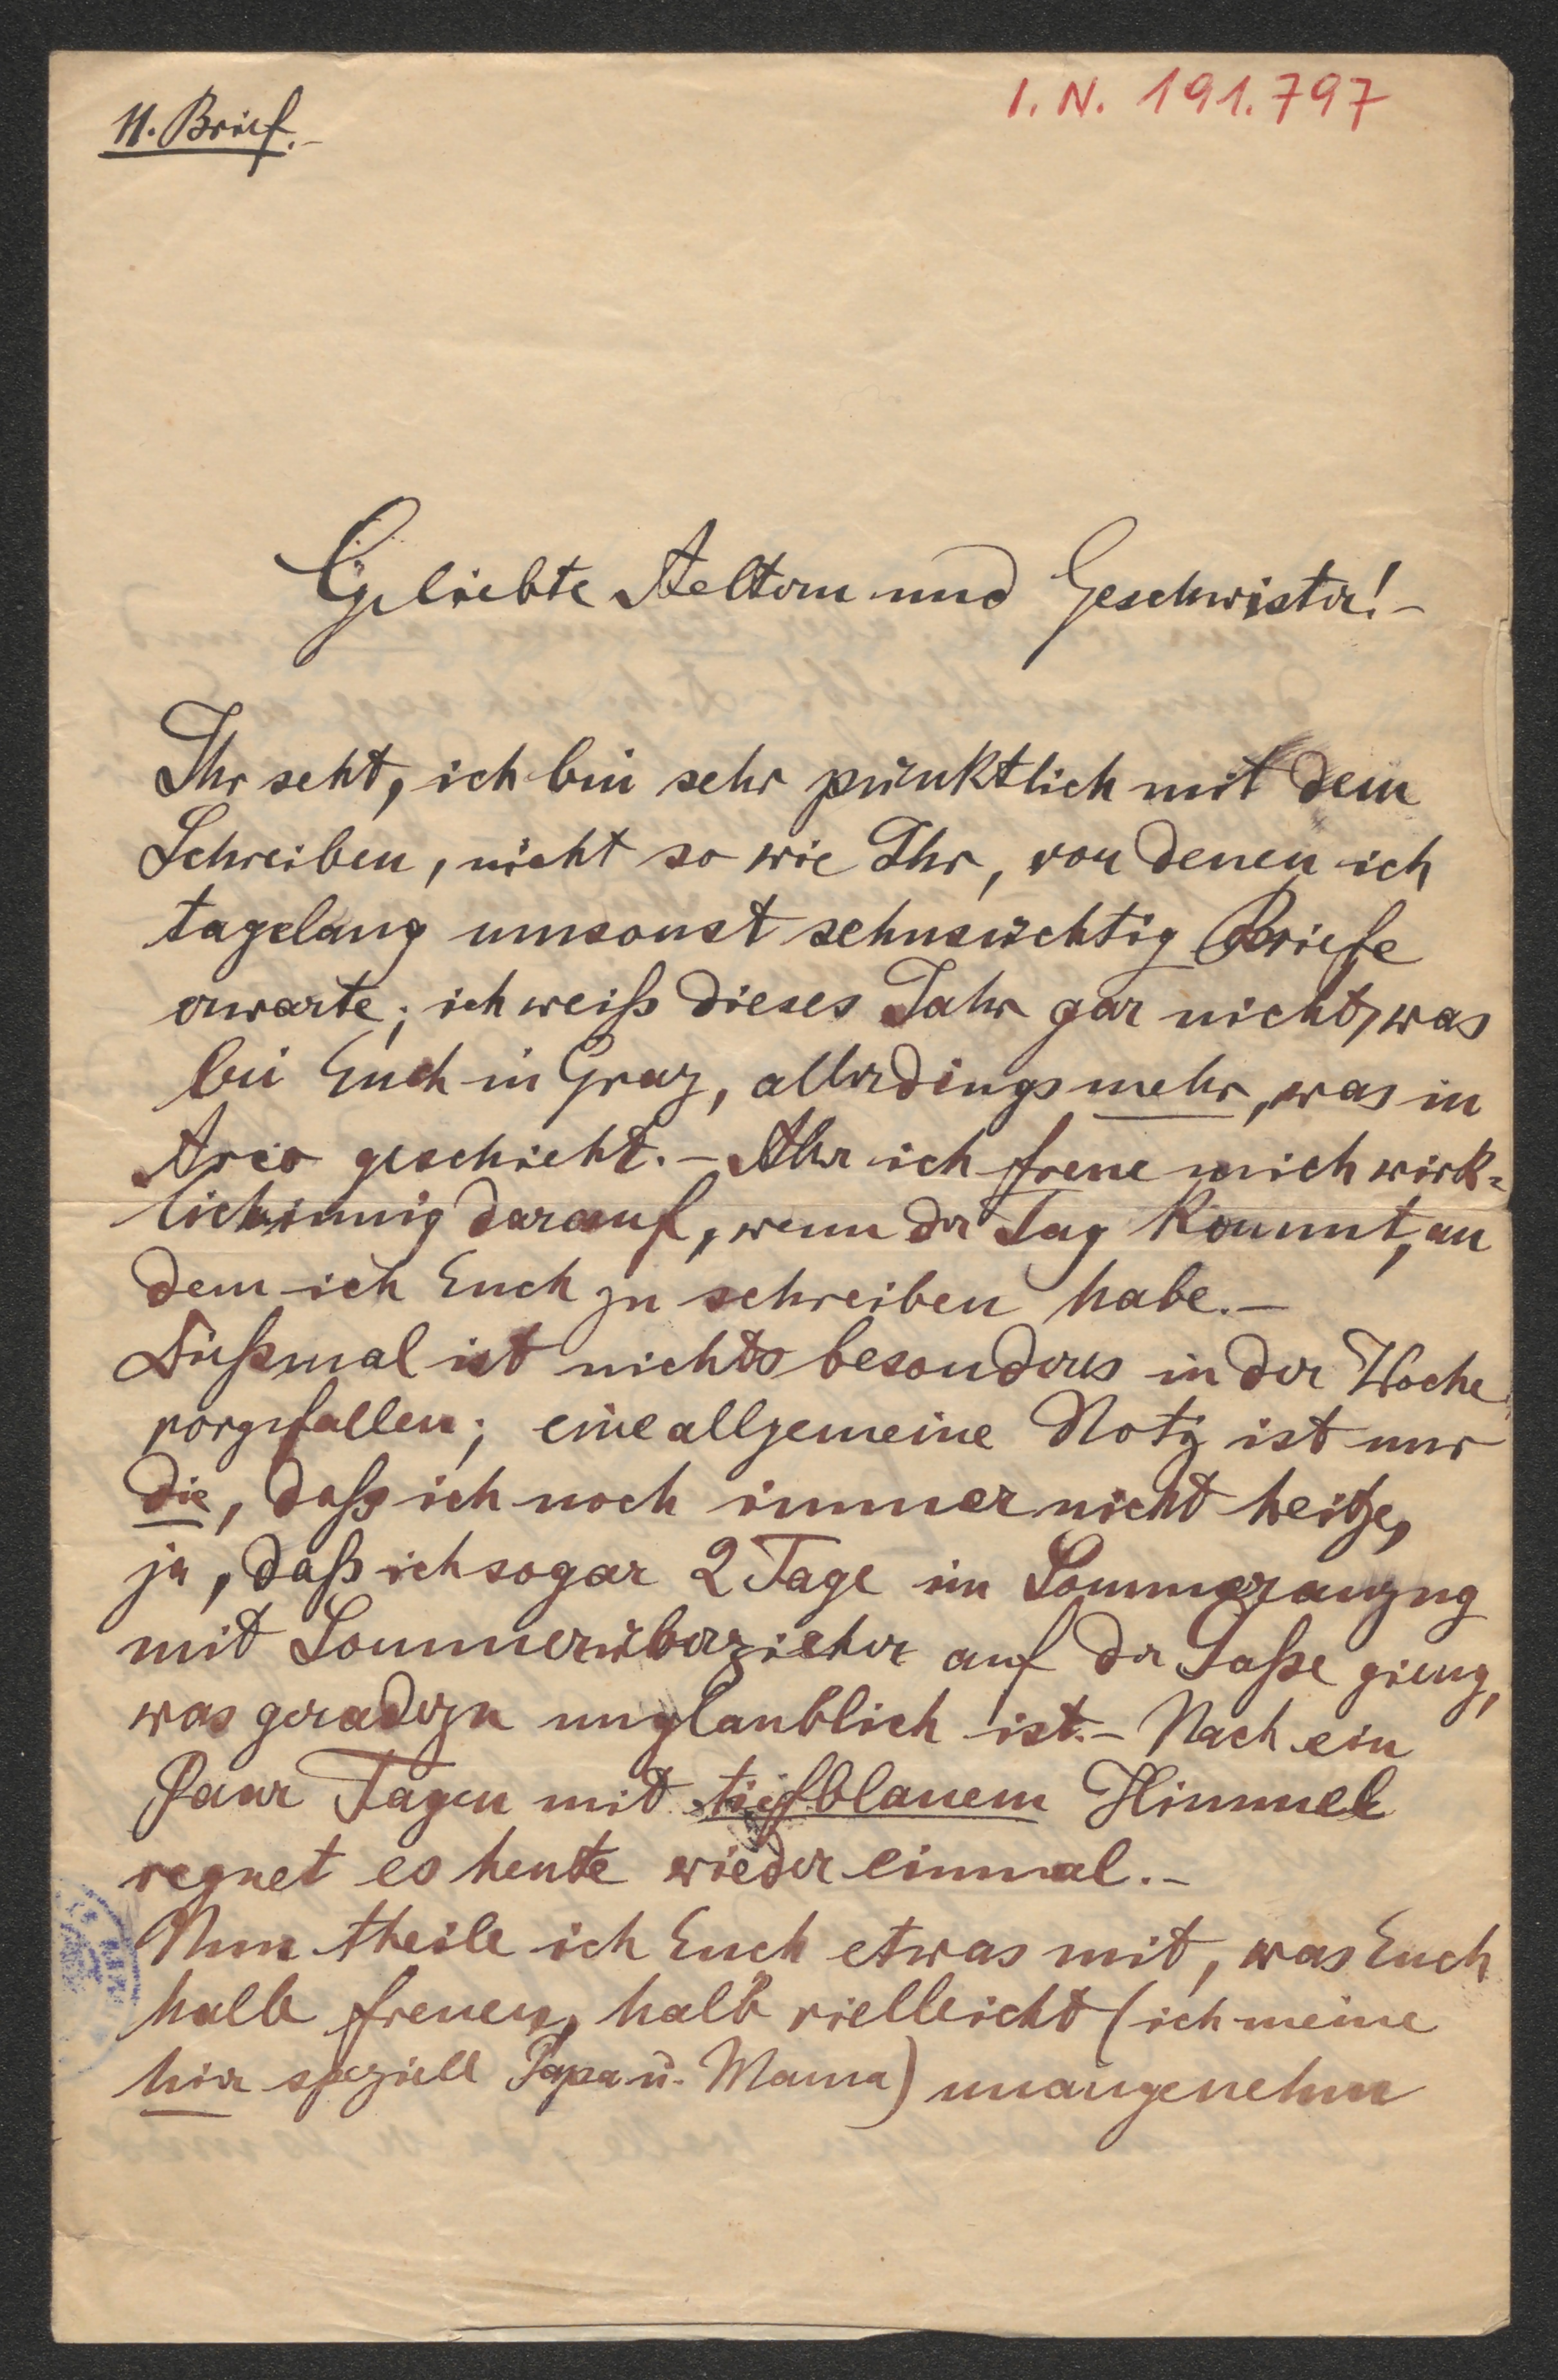 11. Brief.-
I.N. 191.797
Geliebte Aeltern und Geschwister!-
Ihr seht, ich bin sehr pünktlich mit dem
Schreiben, nicht so wie Ihr, von denen ich
tagelang umsonst sehnsüchtig Briefe
erwarte; ich weiß dieses Jahr gar nicht, was
bei Euch in Graz, allerdings mehr, was in
Arco geschieht.- Aber ich freue mich wirk=
lich innig darauf, wenn der Tag kommt, an
dem ich Euch zu schreiben habe.-
Dießmal ist nichts besonderes in der Woche
vorgefallen; eine allgemeine Notiz ist nur
die, daß ich noch immer nicht heitze,
ja, daß ich sogar 2 Tage im Sommeranzug
mit Sommerüberzieher auf der Gaße gieng,
was geradezu unglaublich ist.- Nach ein
Paar Tagen mit tiefblauem Himmel
regnet es heute wieder einmal.-
Nun theile ich Euch etwas mit, was Euch
halb freuen, halb vielleicht (ich meine
hier speziell Papa u. Mama) unangenehm